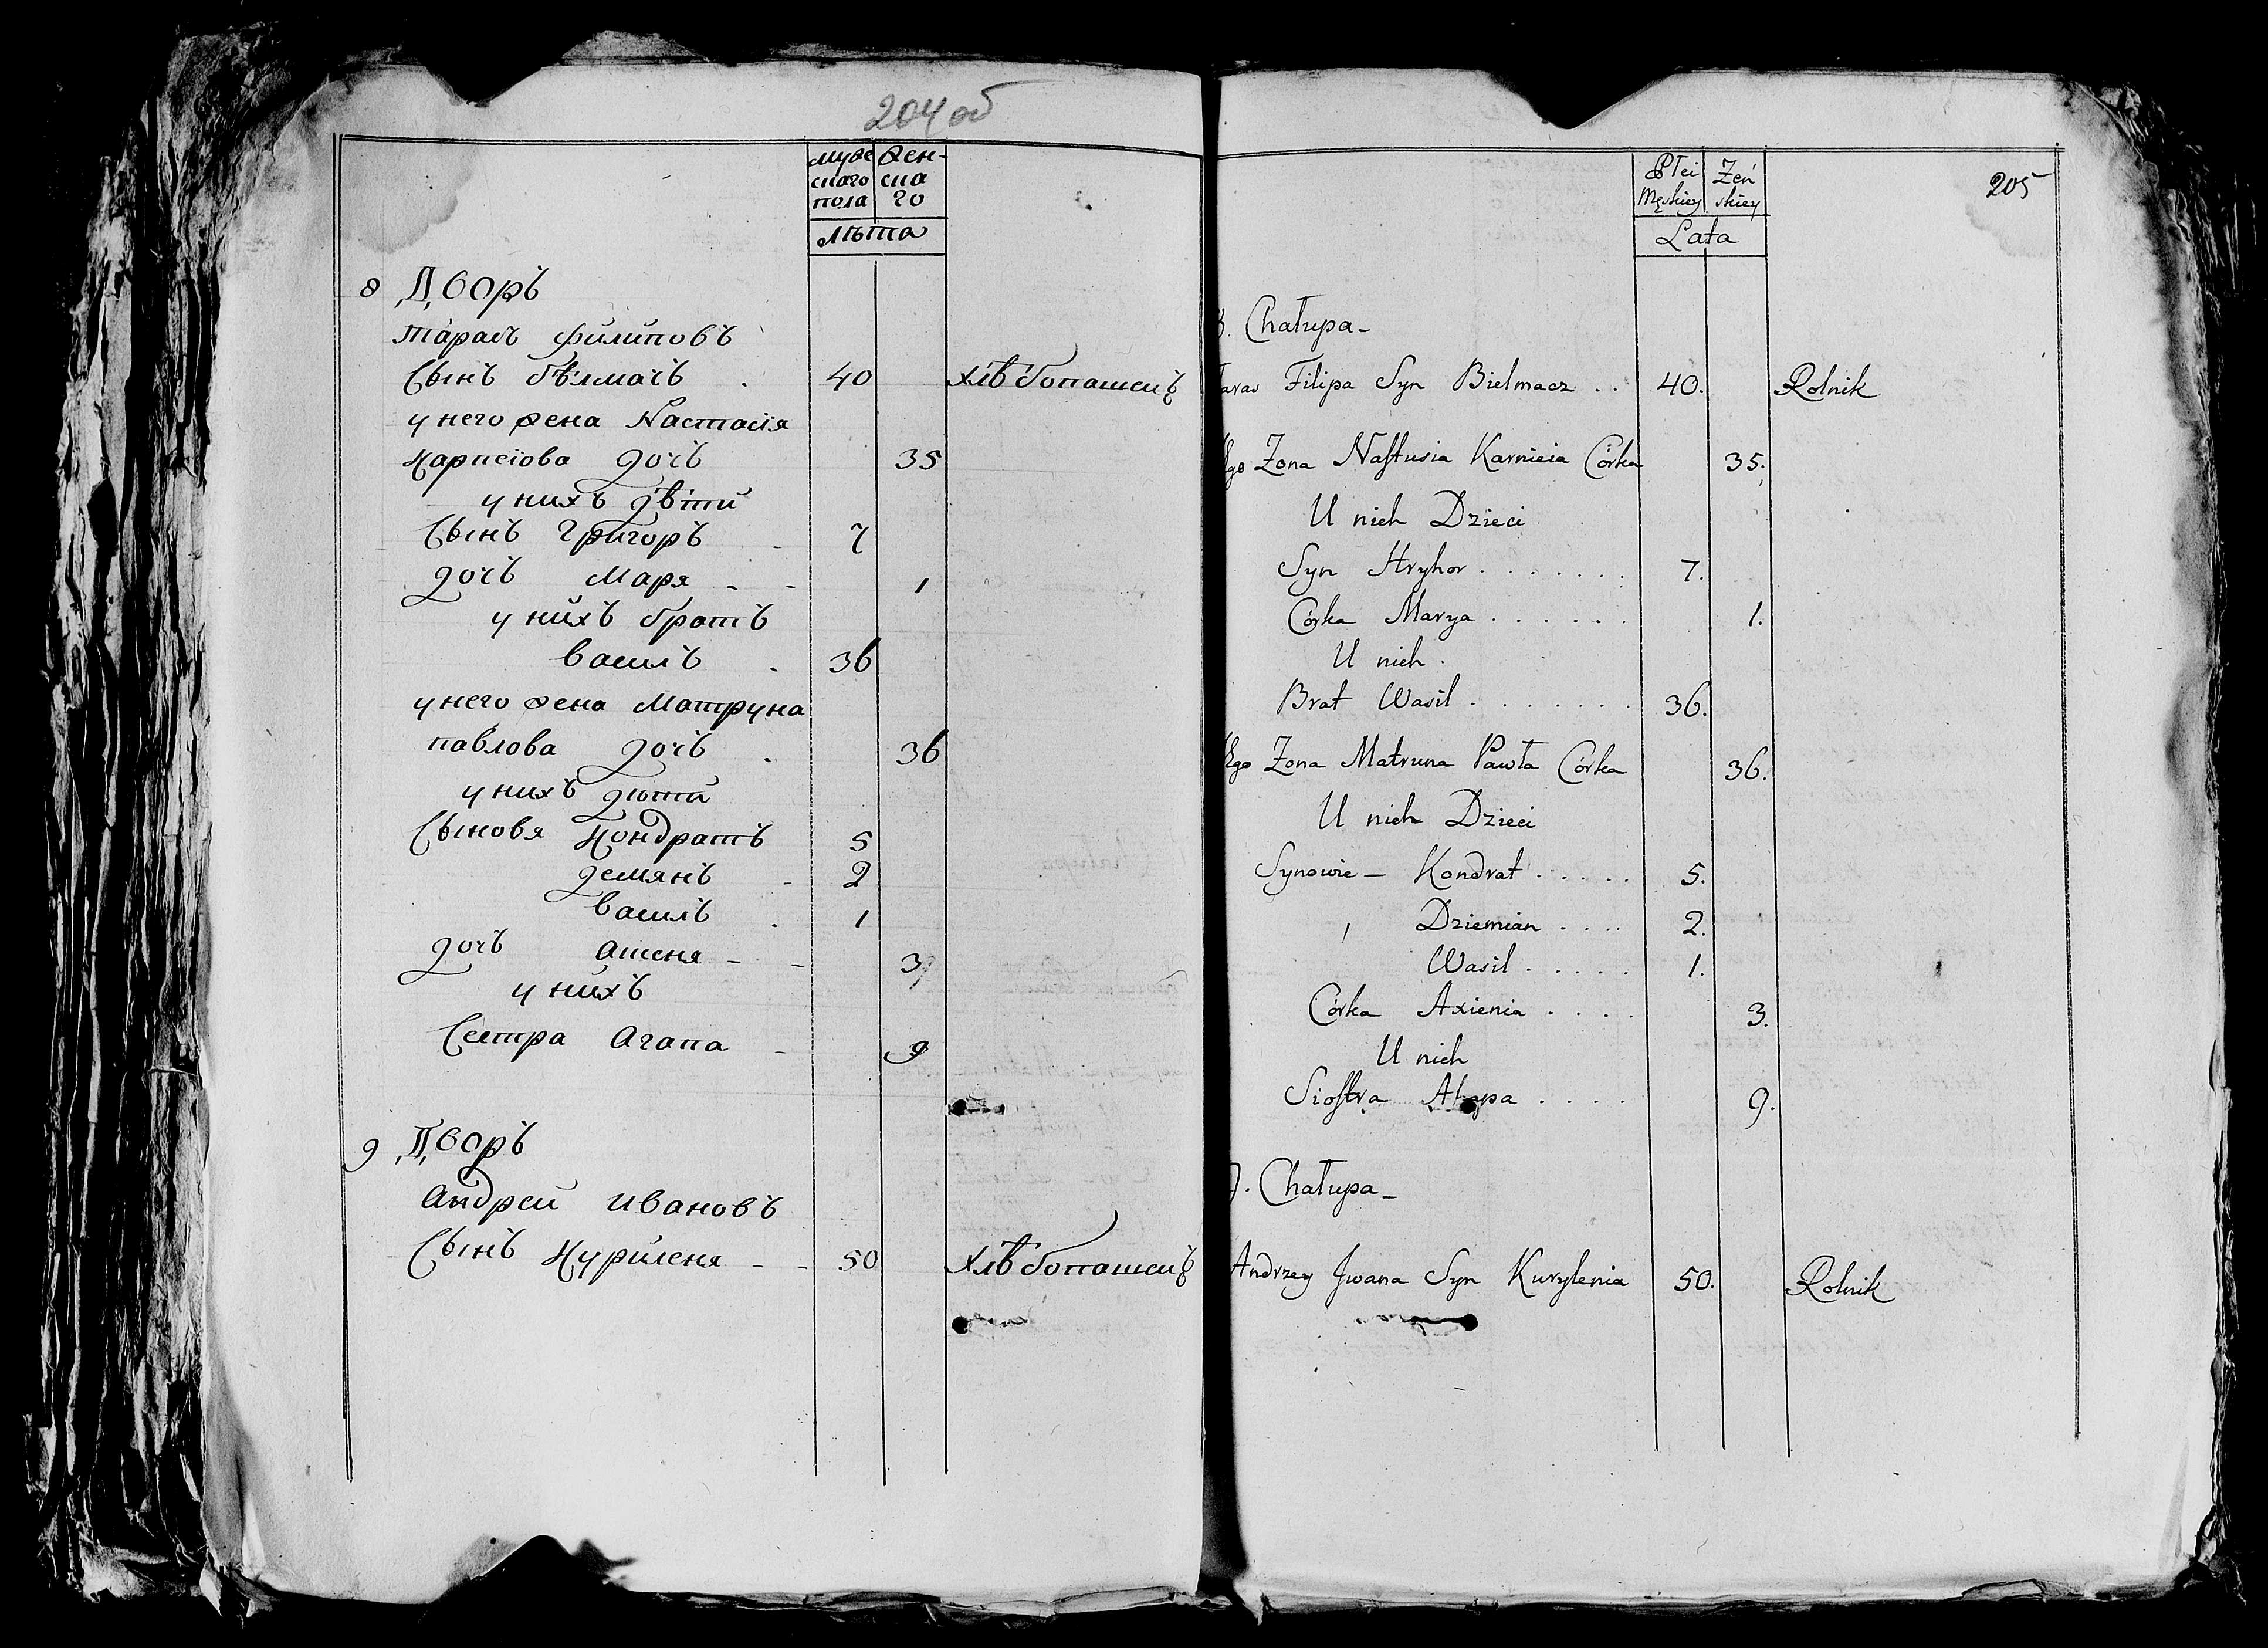 204 об
муже жен-
скаго ска
пола го
лѣта
8 Дворъ
тарасъ филиповъ
Сынъ бѣлмачъ . 40 хлѣбопашецъ
у него жена Настасiя
Карпеiова дочь 35
у нихъ дѣти
Сынъ Григоръ - 7
дочь Маря - - 1
у нихъ братъ
василь . 36
у него жена Матруна
павлова дочь . 36
у нихъ дѣти
Сыновя Кондратъ 5
демянъ - 2
василь . 1
дочь Аксеня - - 3
у нихъ
Сестра Агапа - 9
9 Дворъ
Андрей Ивановъ
Сынъ Куриленя - - 50 Хлѣбопашецъ
205
Płei Żeń
Męskiey skiey
Lata
8. Chałupa -
Taras Filipa Syn Bielmacz . . 40. Rolnik
Ego Zona Nastusia Karnieia Córka 35.
U nich Dzieci
Syn Hryhor . . . . . . . 7.
Córka Marya . . . . . . 1.
U nich .
Brat Wasil . . . . . . . 36.
Ego Zona Matruna Pawła Córka 36.
U nich Dzieci
Synowie - Kondrat . . . . . 5.
, Dziemian . . . . 2.
Wasil . . . . . 1.
Córka Axienia . . . . 3.
U nich
Siostra Ahapa . . . . 9.
9. Chałupa -
Andrzey Jwana Syn Kurylenia 50. Rolnik